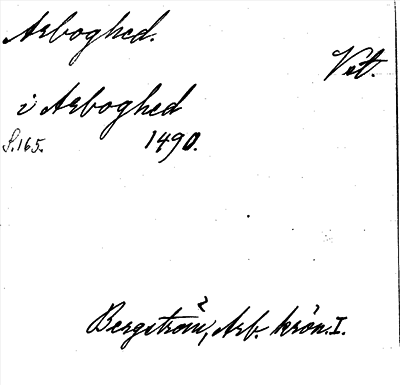 Arboghed.
Vet.
i Arboghed
S. 165. 1490.
Bergström, Arb. krön. I.